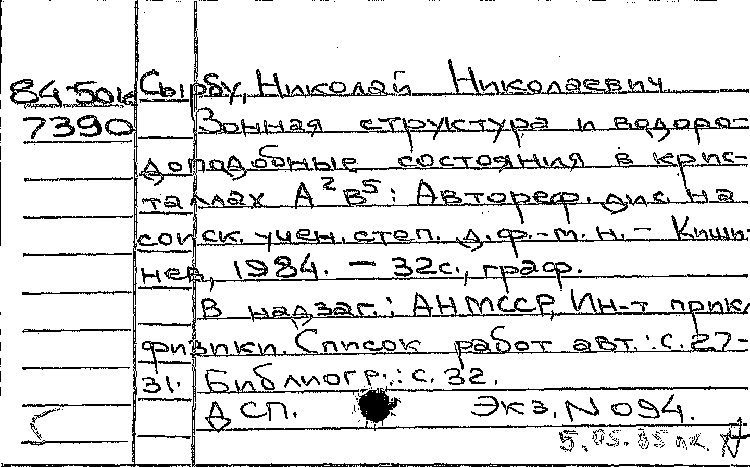 84-501к Сырбу, Николай Николаевич
7390 Зонная структура и водоро-
доподобные состояния в крис-
таллах A²B⁵: Автореф. дис. на
соиск. учен. степ. д.ф.-м.н. - Киши-
нев, 1984. - 32с., граф.
В надзаг.: АН МССР, Ин-т прикл.
физики. Список работ авт.: с.27-
31. Библиогр.: с. 32.
ДСП. Экз. N 094.
5.05.85